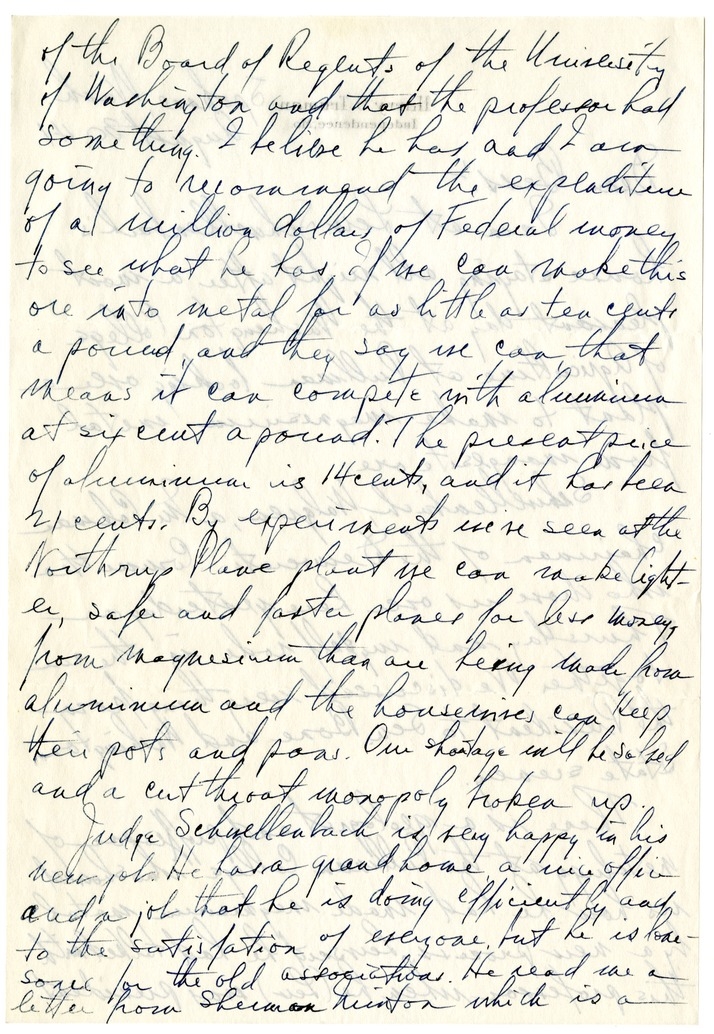 of the Board of Regents of the University
of Washington and that the professor had
something. I believe he has and I am
going to recommend the expenditure
of a million dollars of Federal money
to see what he has. If we can make this
ore into metal for as little as ten cents
a pound, and they say we can, that
means it can compete with aluminum
at six cent a pound. The present price
of aluminum is 14 cents, and it has been
21 cents. By experiments we've seen at the
Northrup Plane plant we can make light-
er, safer and faster planes for less money,
from magnesium than are being made from
aluminum and the housewives can keep
their pots and pans. Our shortage will be solved
and a cut throat monopoly broken up.
Judge Schwellenbach is very happy in his
new job. He has a grand home, a nice office
and a job that he is doing efficiently and
to the satisfation of everyone, but he is lone-
some for the old associations. He read me a
letter from Sherman Minton which is a